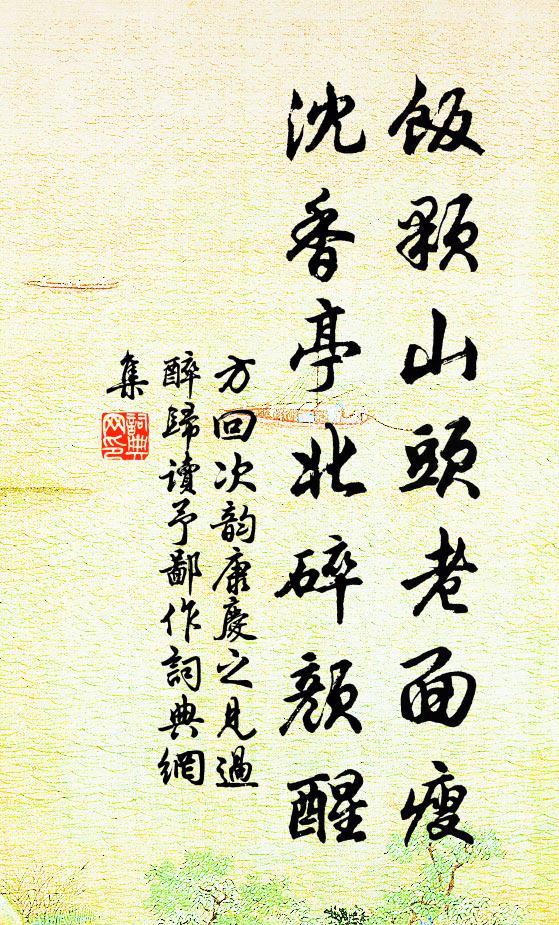 飯顆山頭老面瘦
沈香亭北碎顏醒
方回次韵康慶之見過
醉歸讀予鄙作詞典網
集
詞典網印